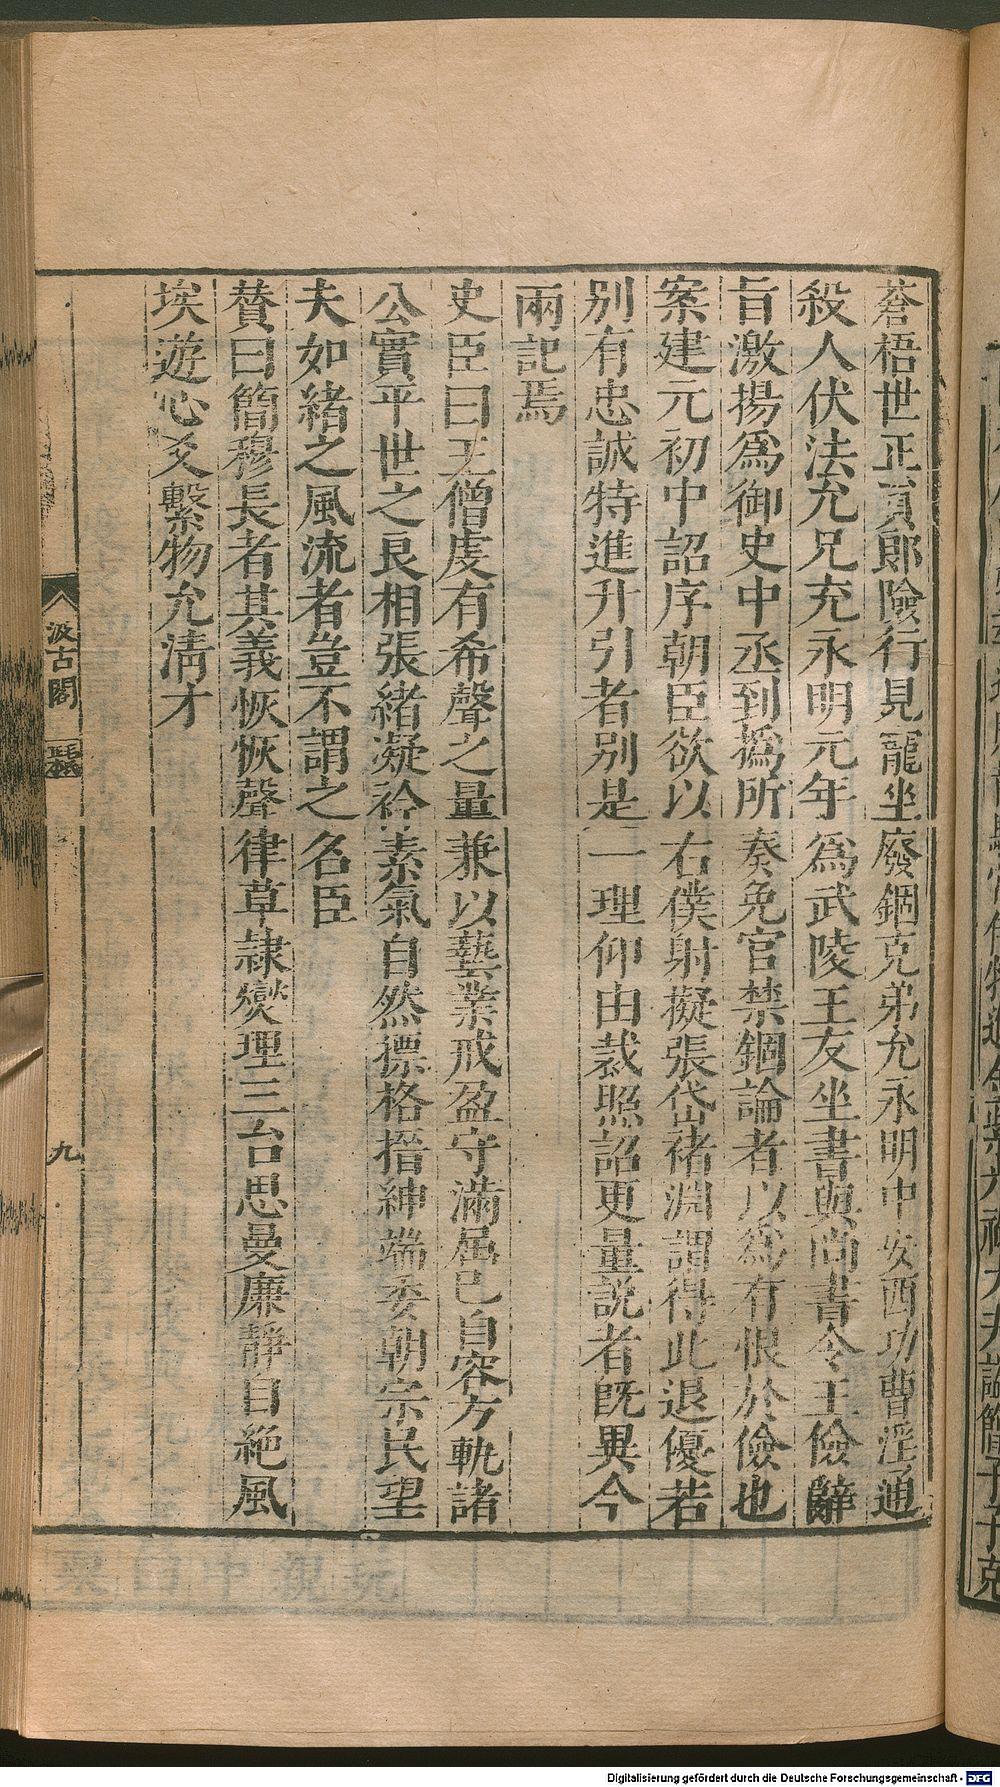 蒼梧世正員郎險行見寵坐廢錮克弟允永明中安西功曹淫通
殺人伏法允兄充永明元年爲武陵王友坐書與尚書令王儉辭
旨激揚爲御史中丞到撝所奏免官禁錮論者以爲有恨於儉也
案建元初中詔序朝臣欲以右僕射擬張岱褚淵謂得此過優若
別有忠誠特進升引者別是一理仰由裁照詔更量說者旣異今
兩記焉
史臣曰王僧虔有希聲之量兼以藝業戒盈守滿屈已自容方軌諸
公實平世之良相張緒凝衿素氣自然標格搢紳端委朝宗民望
夫如緒之風流者豈不謂之名臣
贊曰簡穆長者其義恢恢聲律草隷爕理三台思曼廉靜自絶風
埃遊心爻繫物允清才
汲古閣
九
Digitalisierung gefördert durch die Deutsche Forschungsgemeinschaft - DFG